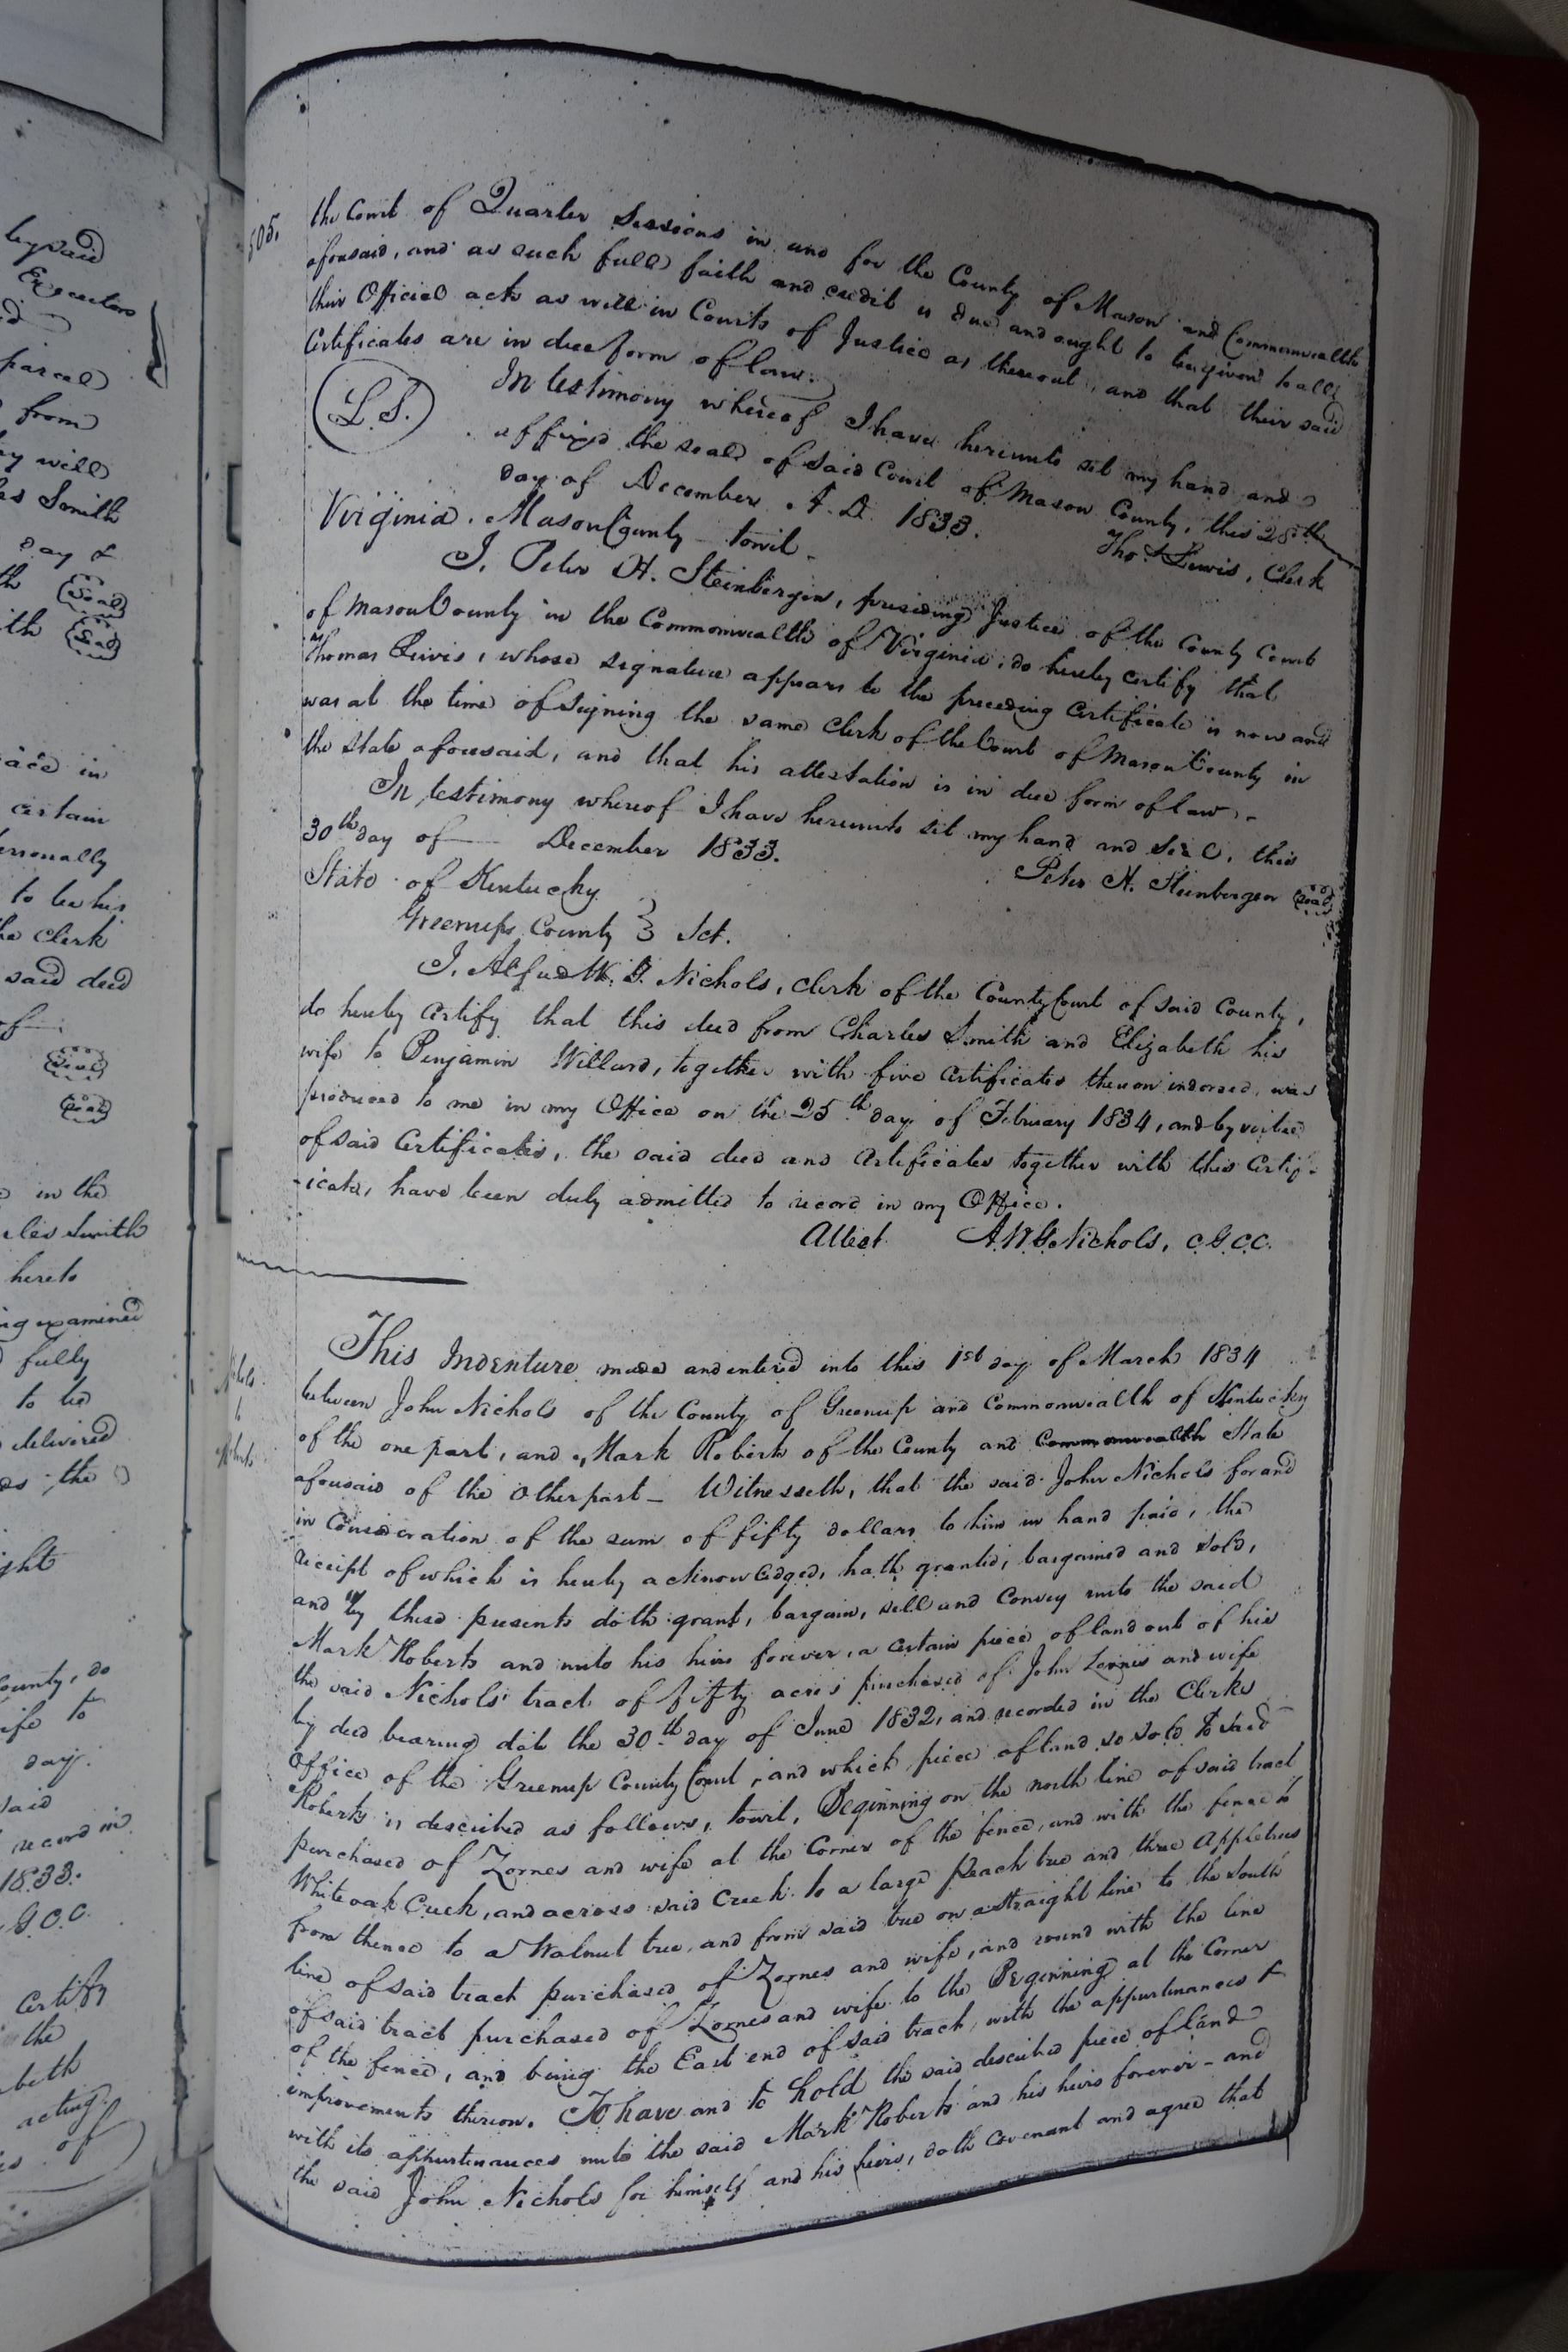 505.
the Court of Quarter Sessions in and for the County of Mason and Commonwealth
aforesaid, and as such full faith and credit is due and ought to be given to all
their Official acts as well in Courts of Justice as thereout, and that their said
Certificates are in due form of law.
(L.S.) In testimony whereof I have hereunto set my hand and
affixed the seal of said Court of Mason County, this 28th
day of December A.D. 1833.
Thos. Lewis, Clerk
Virginia. Mason County towit
I, Peter H. Steinbergen, presiding Justice of the County Court
of Mason County in the Commonwealth of Virginia, do hereby certify that
Thomas Lewis, whose signature appears to the preceding certificate is now and
was at the time of signing the same Clerk of the Court of Mason County in
the State aforesaid, and that his attestation is in due form of law.
In testimony whereof I have hereunto set my hand and seal, this
30th day of December 1833.
Peter H. Steinbergen Seal
State of Kentucky
Greenup County } Sct.
I, Alfred W. G. Nichols, clerk of the County Court of said County,
do hereby certify that this deed from Charles Smith and Elizabeth his
wife to Benjamin Willard, together with five certificates thereon indorsed, was
produced to me in my Office on the 25th day of February 1834, and by virtue
of said Certificates, the said deed and certificates together with this certif-
-icate, have been duly admitted to record in my Office.
Attest A.W.G. Nichols, C.G.C.C.
This Indenture made and entered into this 1st day of March 1834
between John Nichols of the County of Greenup and Commonwealth of Kentucky
of the one part, and Mark Roberts of the County and Commonwealth State
aforesaid of the other part – Witnesseth, that the said John Nichols for and
in consideration of the sum of fifty dollars to him in hand paid, the
receipt of which is hereby acknowledged, hath granted, bargained and sold,
and by these presents doth grant, bargain, sell and convey unto the said
Mark Roberts and unto his heirs forever, a certain piece of land out of his
the said Nichols' tract of fifty acres purchased of John Zornes and wife
by deed bearing date the 30th day of June 1832, and recorded in the Clerks
Office of the Greenup County Court, and which piece of land so sold to said
Roberts is described as follows, towit, Beginning on the north line of said tract
purchased of Zornes and wife at the Corner of the fence, and with the fence to
Whiteoak Creek, and across said creek to a large Peach tree and three Appletrees
from thence to a Walnut tree, and from said tree on a straight line to the South
line of said tract purchased of Zornes and wife, and round with the line
of said tract purchased of Zornes and wife to the Beginning at the Corner
of the fence, and being the East end of said track, with the appurtenances &
improvements thereon. To have and to hold the said described piece of land
with its appurtenances unto the said Mark Roberts and his heirs forever – and
the said John Nichols for himself and his heirs, doth covenant and agree that